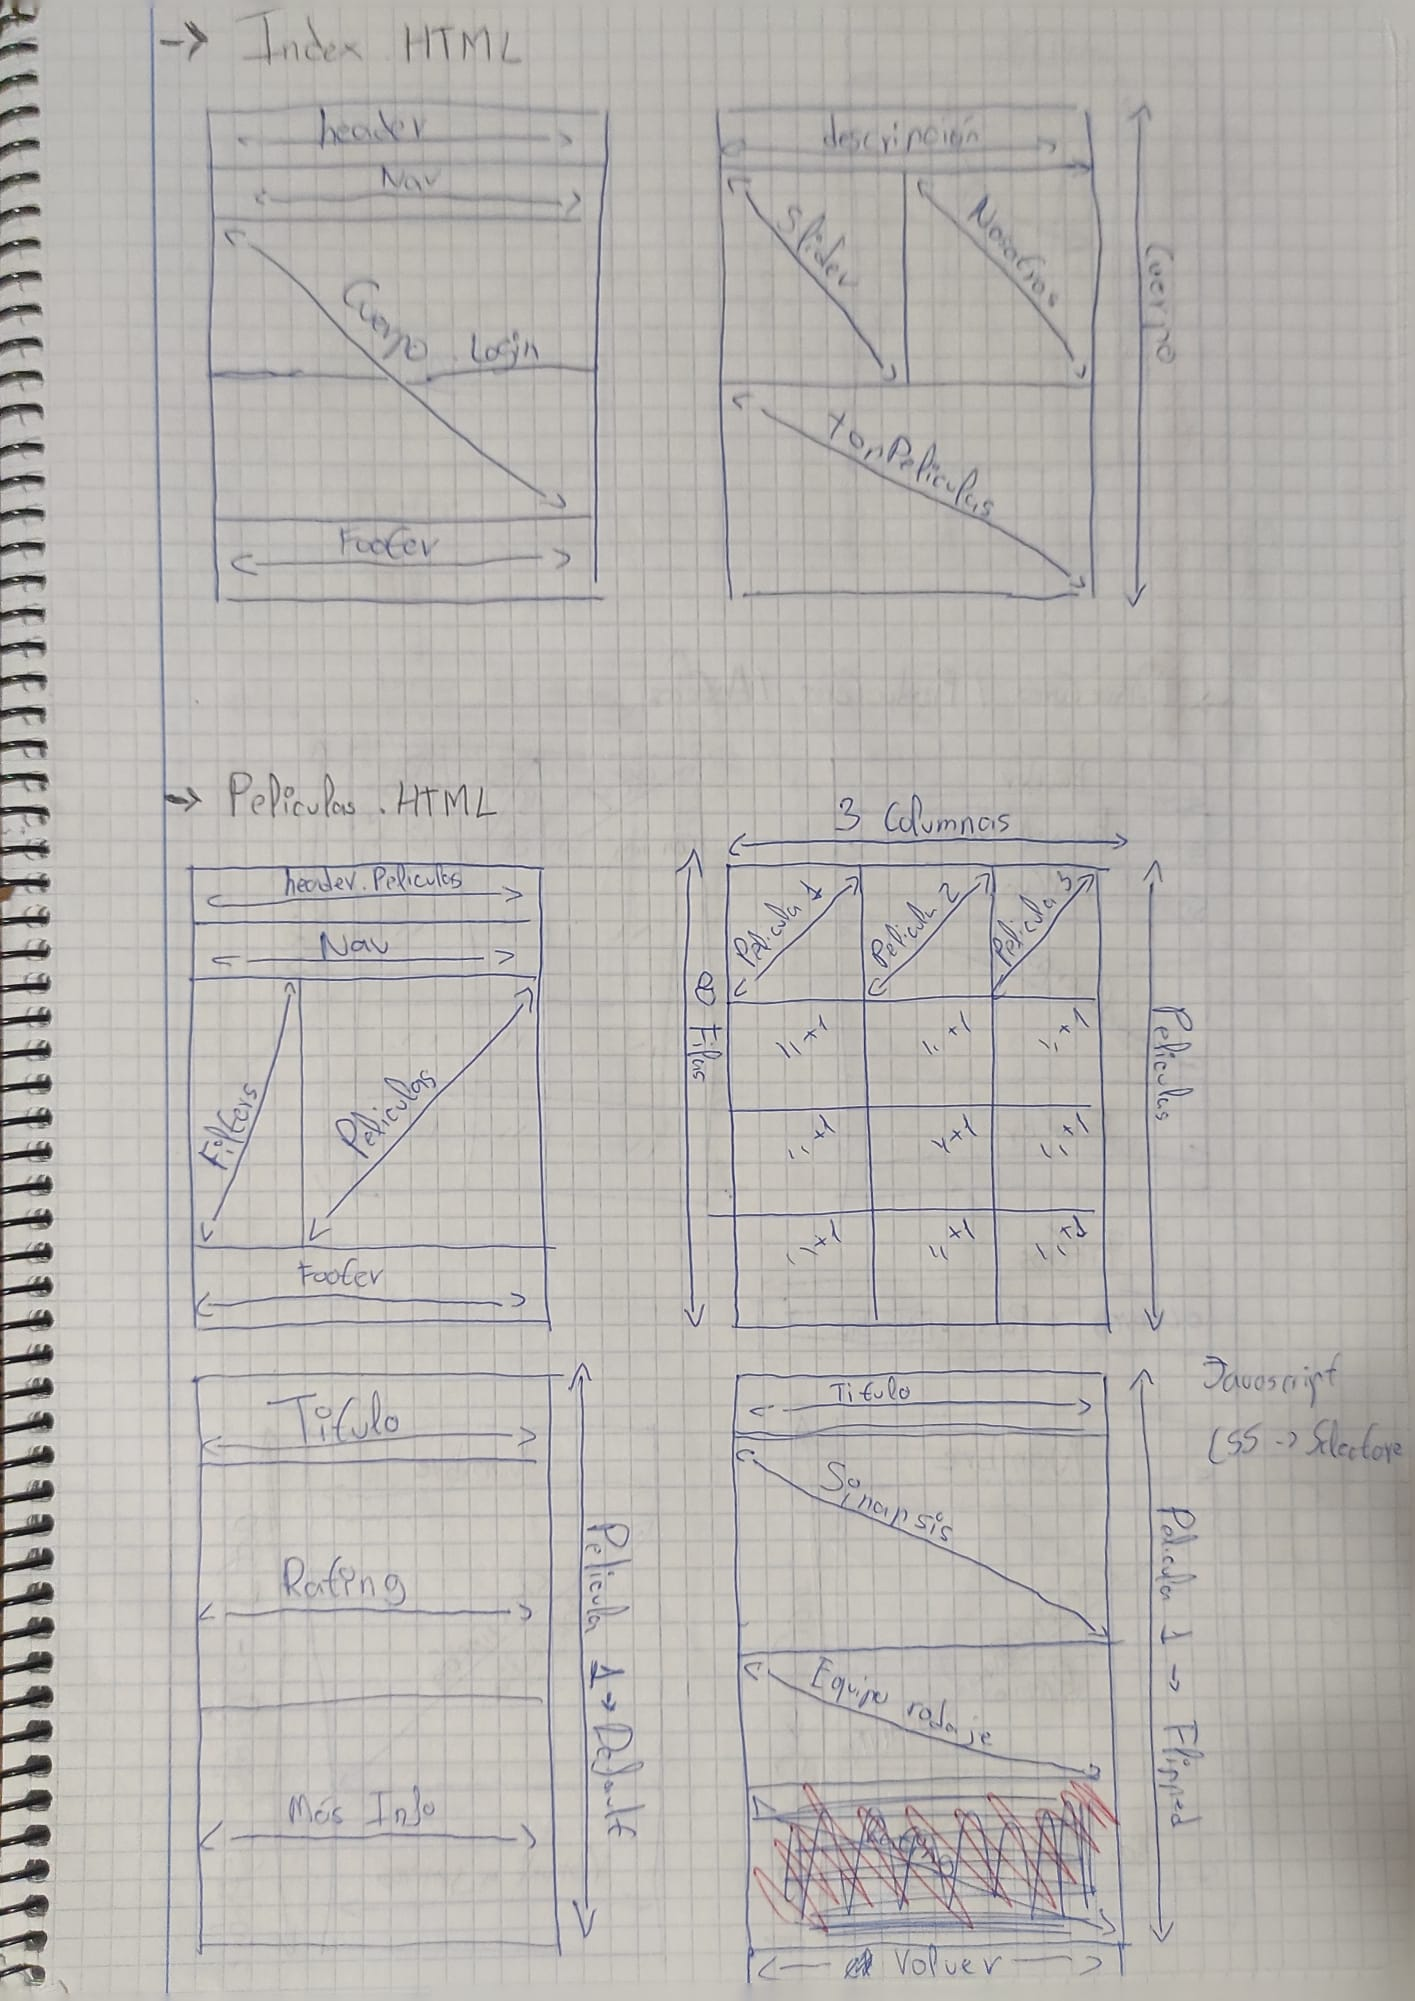 -> Index HTML
header
Nav
Cuerpo Login
Footer
descripción
Slider
Nosotros
topPeliculas
Cuerpo
-> Peliculas.HTML
header.Peliculas
Nav
Filters
Peliculas
Footer
3 Columnas
8 Filas
Pelicula 1
Pelicula 2
Pelicula 3
,, x1 ,, x1 ,, x1
,, x1 ,, x1 ,, x1
,, x1 ,, x1 ,, x1
Peliculas
Titulo
Rating
Más Info
Pelicula 1 -> Default
Titulo
Sinapsis
Equipo rodaje
Volver
Pelicula 1 -> Flipped
Javascript
CSS -> Selectore